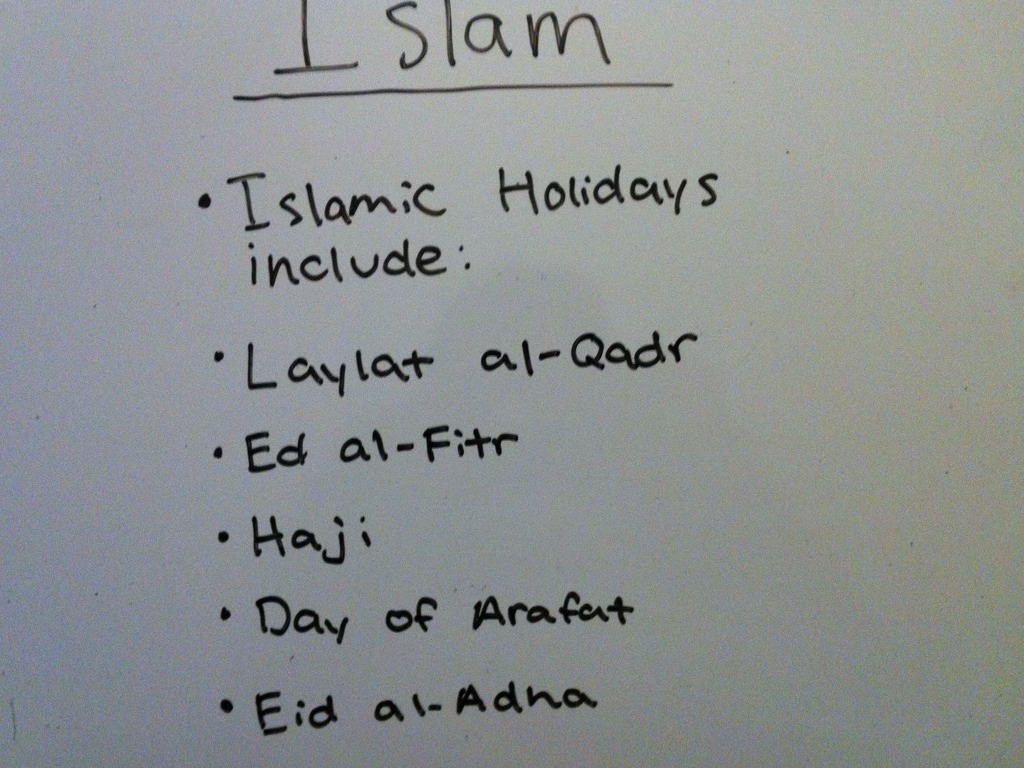 Islam
• Islamic Holidays
include:
• Laylat al-Qadr
• Ed al-Fitr
• Haji
• Day of Arafat
• Eid al-Adha